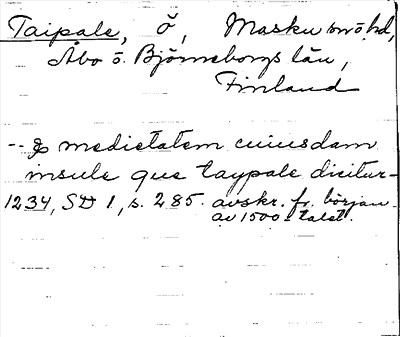 Taipale, ö, Masku sn o. hd,
Åbo o. Björneborgs län,
Finland
-- & medietatem cuiusdam
insule que taypale dicitur -
1234, SD 1, s. 285. avskr. fr. början
av 1500-talet.